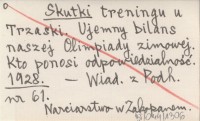 Skutki treningu u
Trzaski. Ujemny bilans
naszej Olimpiady zimowej.
Kto ponosi odpowiedzialność.
1928. — Wiad. z Podh.
nr 61.
Narciarstwo w Zakopanem.